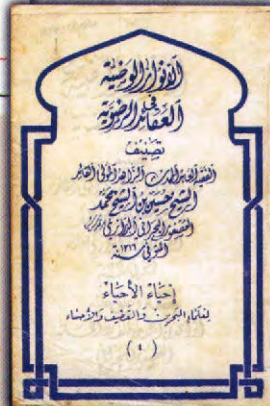 الأنوار الوضية
في
العقائد الرضوية
تصنيف
الفقيه العابد المحدث الزاهد المولى القائد
الشيخ حسين بن الشيخ محمد
العصفور البحراني الدرازي
المتوفى سنة ١٢١٦
إحياء الأحياء
لعلماء البحرين والقطيف والأحساء
( ٤ )